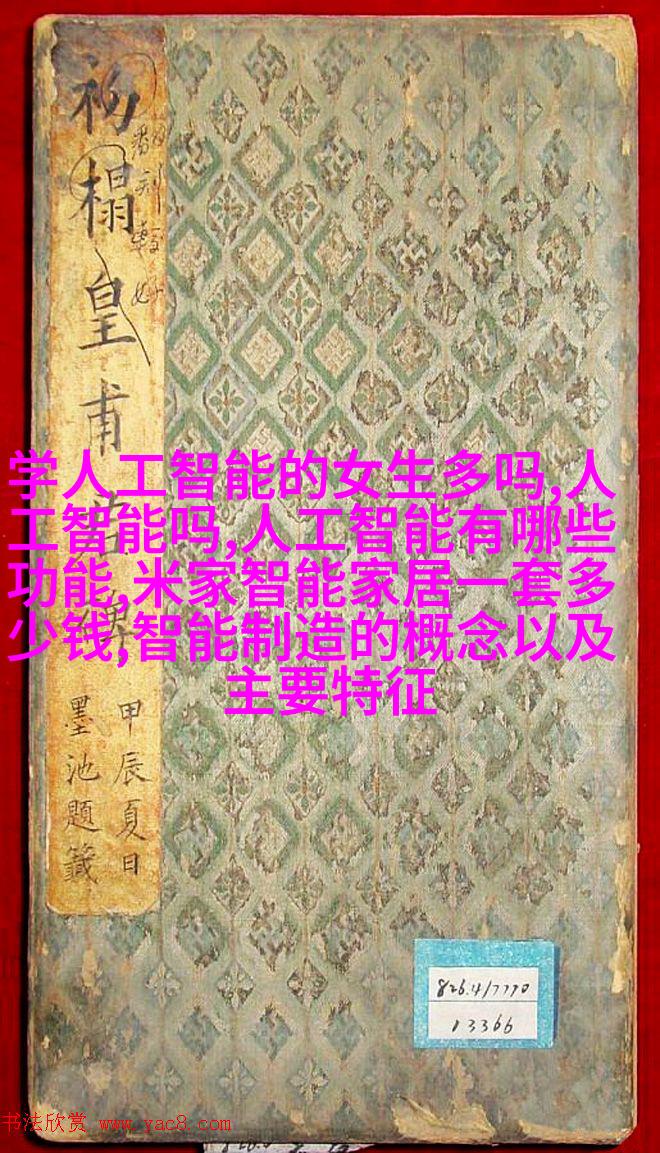 初榻皇甫君碑
翻刻較好
甲辰夏日
墨池題籤
学人工智能的女生多吗,人
工智能吗,人工智能有哪些
功能,米家智能家居一套多
少钱,智能制造的概念以及
主要特征
826.4/7770
13366
书法欣赏 www.yac8.com